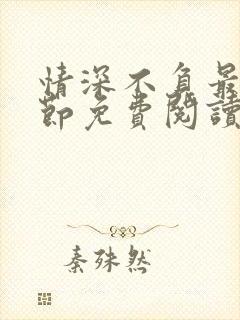 情深不負最
節免費閱讀
秦殊然